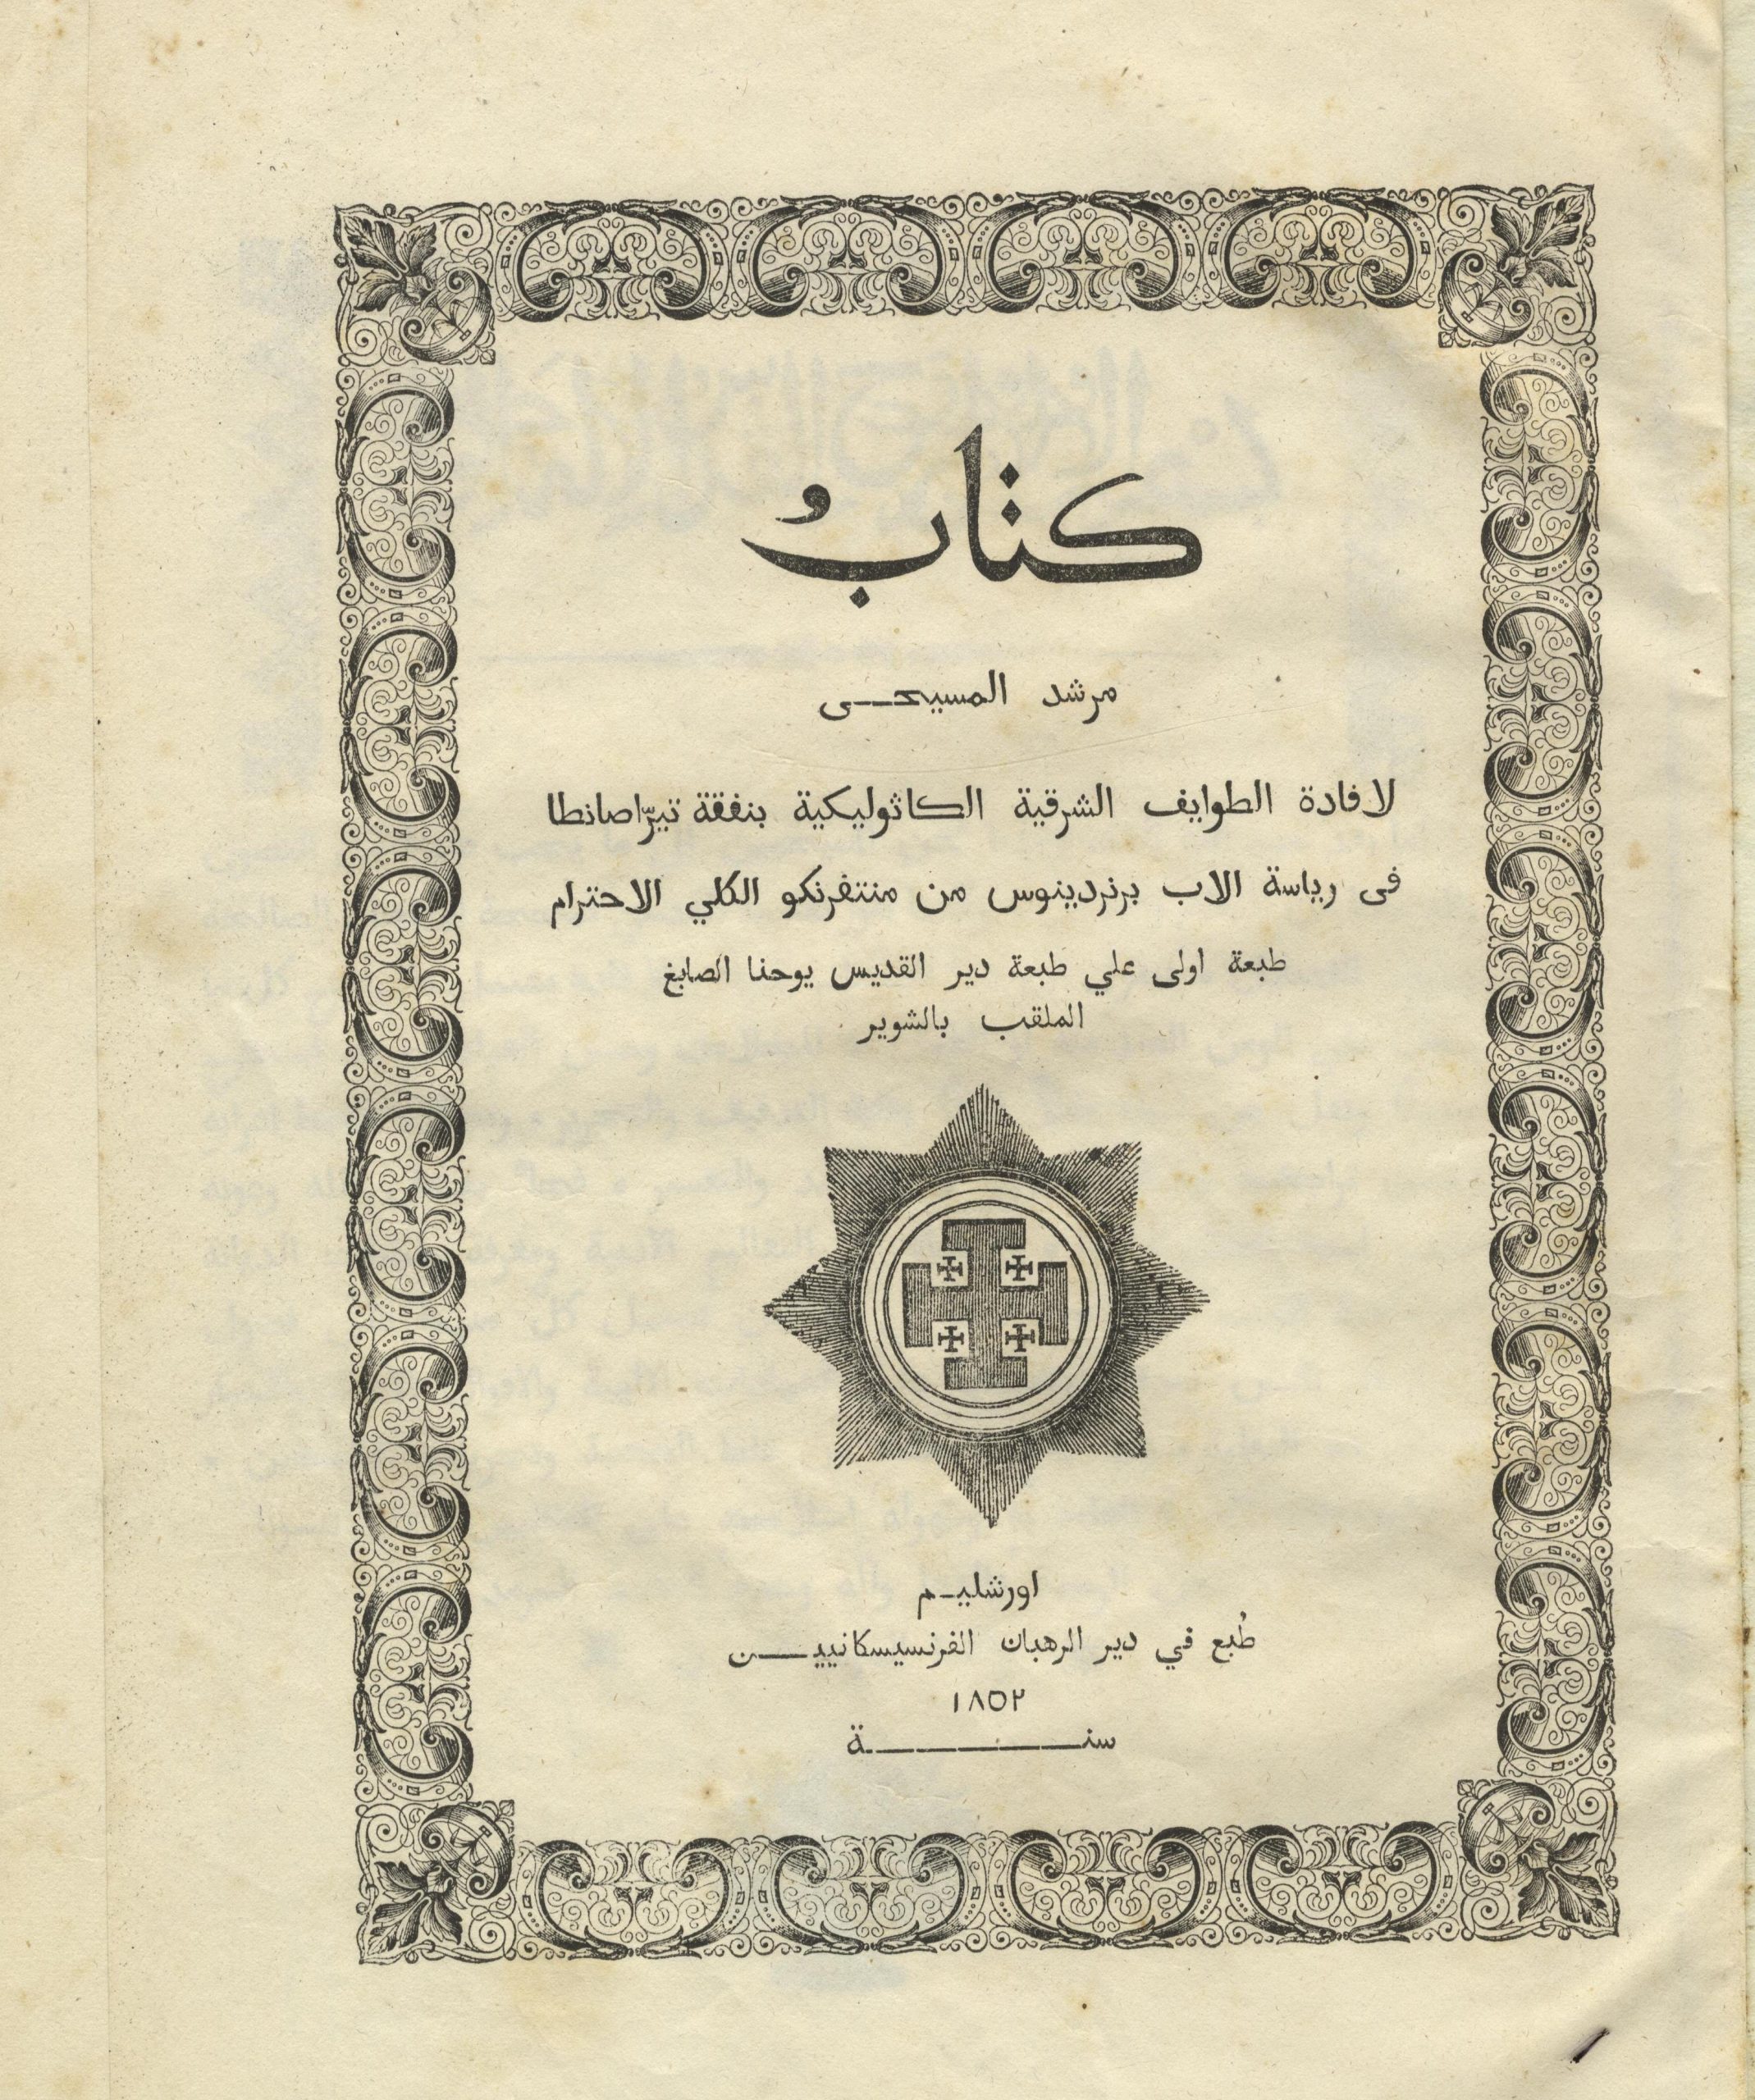 كتابُ
مرشد المسيحى
لافادة الطوايف الشرقية الكاثوليكية بنفقة تيرّاصانطا
فى رياسة الاب برنردينوس من منتفرنكو الكلي الاحترام
طبعة اولى علي طبعة دير القديس يوحنا الصابغ
الملقب بالشوير
اورشليم
طُبع في دير الرهبان الفرنسيسكانيين
١٨٥٢
سنة